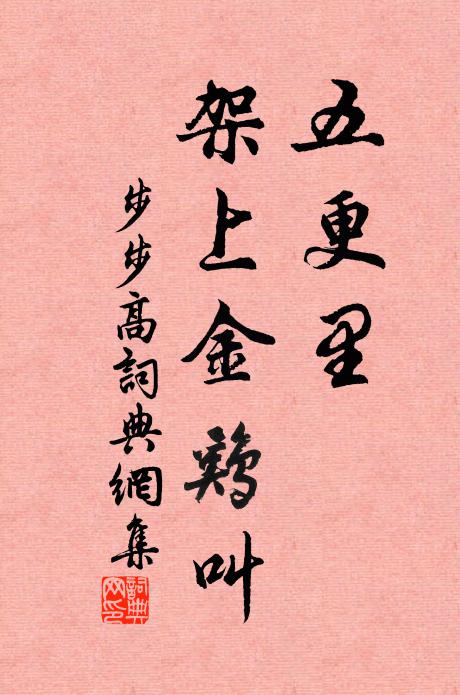 五更里
架上金鷄叫
步步高詞典網集
詞典
网印